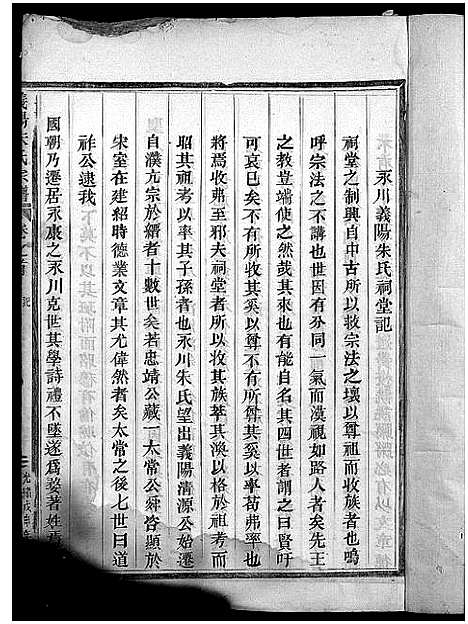 永川義陽朱氏祠堂記
祠堂之制興自中古所以救宗法之壞以尊祖而收族者也嗚
呼宗法之不講也世因有分同一氣而漠視如路人者矣先王
之教豈端使之然哉其來也有能自名其四世者謂之曰賢吁
可哀已矣不有所收奚以尊不有所尊其奚以率苟弗率也
將為收弗至邪夫祠堂者所以收其族萃其渙以格於祖考而
昭其祖考以率其子孫者也永川朱氏望出義陽清源公始遷
自濮亢宗於縉者十數世矣若忠靖公藏一太常公舜咨顯於
宋室在建紹時德業文章其尤偉然者矣太常之後七世曰道
祚公逮我
國朝乃遷居永康之永川克世其學詩禮不墜遂為婺著姓
義陽朱氏宗譜 卷之首 記